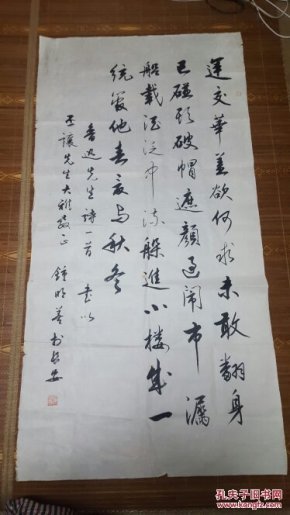 運交華盖欲何求未敢翻身
已碰頭破帽遮顏過鬧市漏
船載酒泛中流躲進小樓成一
統管他春夏与秋冬
魯迅先生詩一首 書以
讓先生大雅教正 鍾明善書長安
孔夫子旧书网